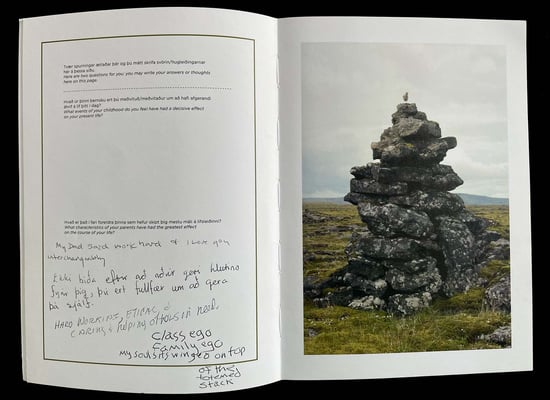 Tvær spurningar ætlaðar þér og þú mátt skrifa svörin/hugleiðingarnar
hér á þessa síðu.
Here are two questions for you: you may write your answers or thoughts
here on this page.
Hvað úr þinni barnsku ert þú meðvituð/meðvitaður um að hafi afgerandi
áhrif á líf þitt í dag?
What events of your childhood do you feel have had a decisive effect
on your present life?
Hvað er það í fari foreldra þinna sem hefur skipt þig mestu máli á lífsleiðinni?
What characteristics of your parents have had the greatest effect
on the course of your life?
My Dad said work hard & I love you
interchangeably
Ekki bíða eftir að aðrir geri hlutina
fyrir þig, þú ert fullfær um að gera
það sjálf.
HARD WORKING, ETHICAL &
CARING & helping others in need
Class ego
Family ego
My soul sits winged on top
of the
totemed
stack